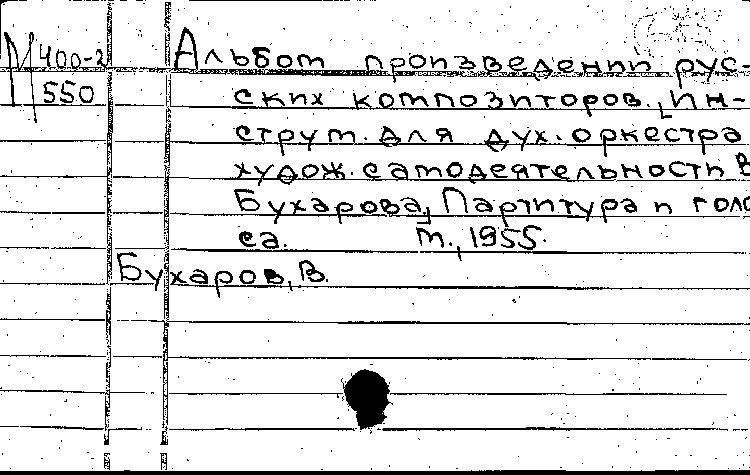 М 400-2
550
Альбом произведений рус-
ских композиторов. [Ин-
струм. для дух. оркестра
худож. самодеятельности В.
Бухарова] Партитура и голо
са. М., 1955.
Бухаров, В.